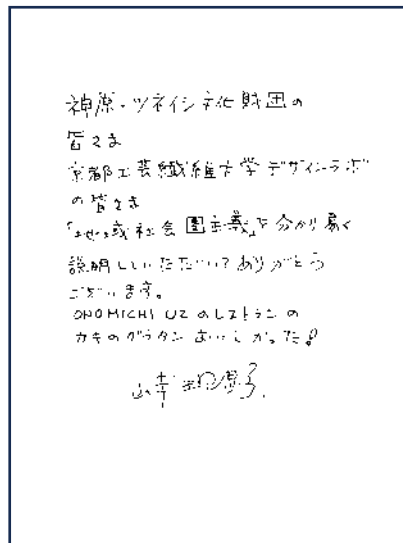 神原・ツネイシ文化財団の
皆さま
京都工芸繊維大学デザインラボ
の皆さま
「地域社会圏主義」を分かり易く
説明していただいてありがとう
ございます。
ONOMICHI U2 のレストランの
カキのグラタンおいしかった!
山本理顕